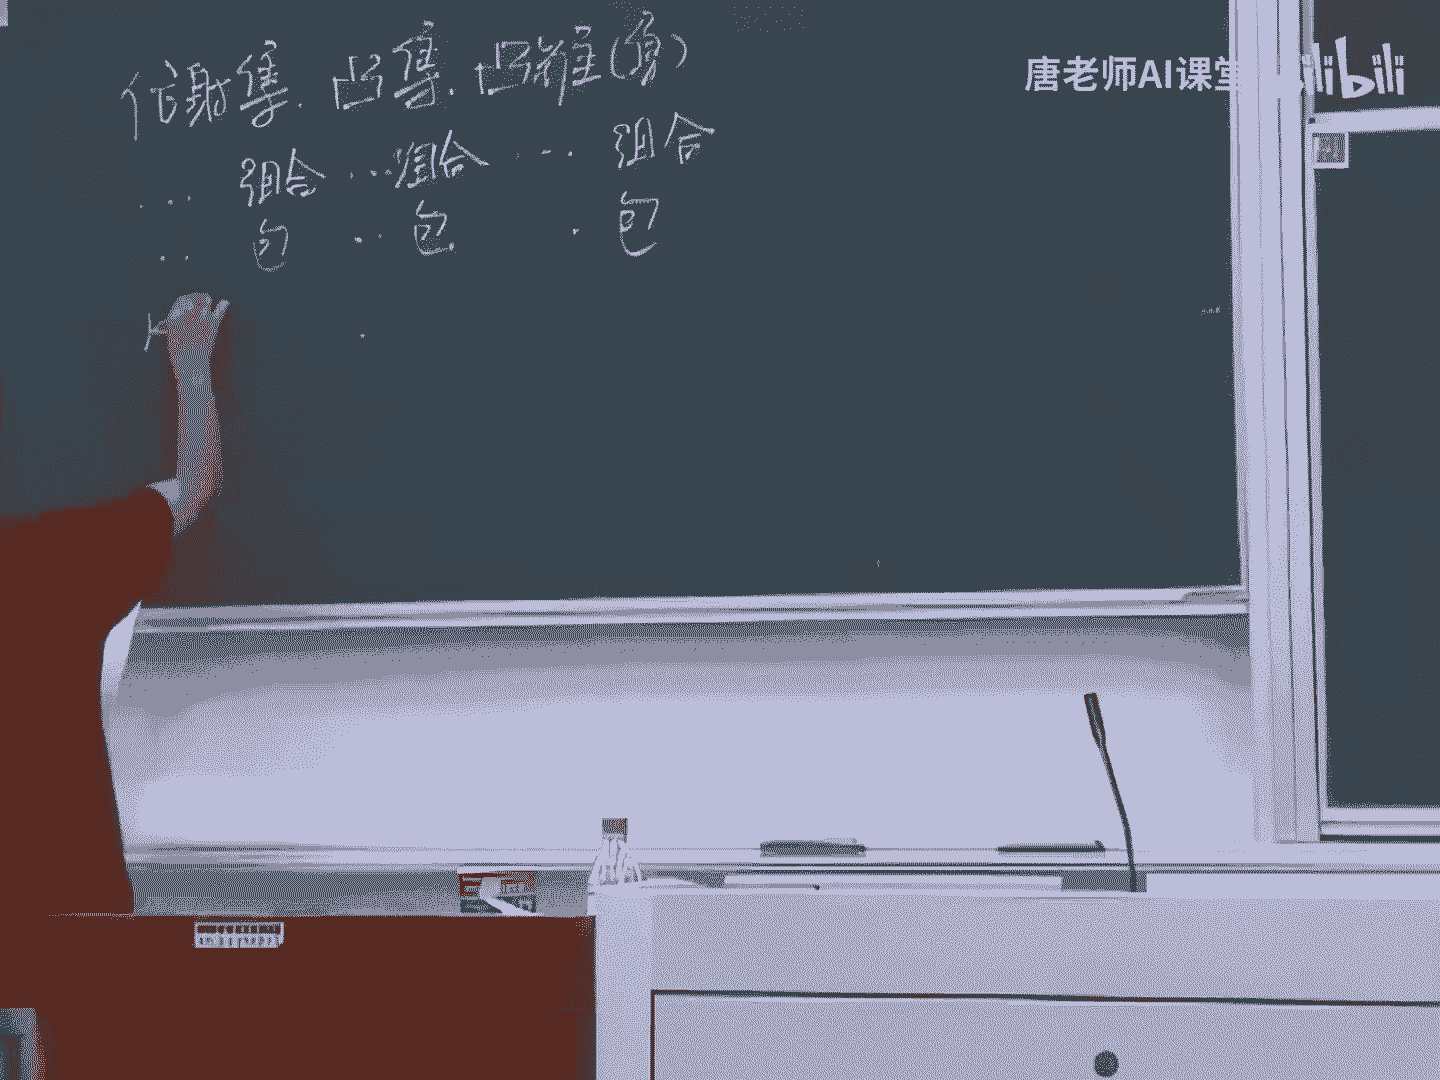 仿射集. 凸集. 凸锥(集)
... 组合 ... 组合 ... 组合
.. 包 .. 包 . 包
唐老师AI课堂 bilibili